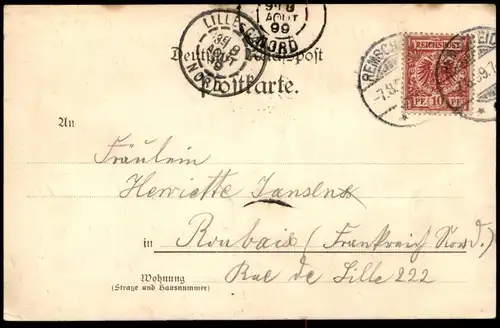 LILLE GARE NORD
9-8
AOUT
99
LILLE
NORD
AOUT
Deutsche Reichspost
Postkarte.
REMSCHEID
-7.8.
REICHSPOST
10 PF 10
An
Fräulein
Henriette Jansens
in Roubaix (Frankreich Nord.)
Wohnung
(Straße und Hausnummer)
Rue de Lille 222